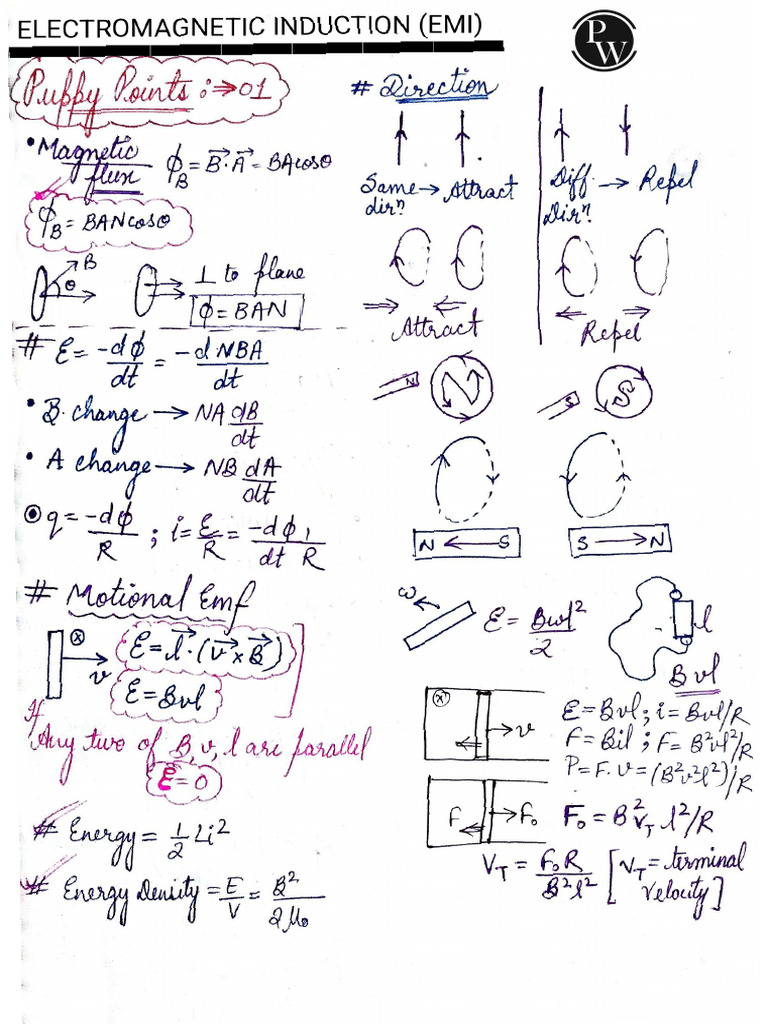 ELECTROMAGNETIC INDUCTION (EMI)
P
W
Puppy Points :⇒01
• Magnetic flux ϕ_B = B⃗·A⃗ = BAcosθ
ϕ_B = BANcosθ
B
θ
⊥ to plane
ϕ = BAN
# ℰ = -dϕ/dt = -dNBA/dt
• B change → NA dB/dt
• A change → NB dA/dt
⊙ q = -dϕ/R ; i = ℰ/R = -dϕ/dt 1/R
# Motional Emf
(x)
v
ℰ = l⃗·(v⃗×B⃗)
ℰ = Bvl
If
Any two of B, v, l are parallel
ℰ = 0
# Energy = 1/2 Li²
# Energy Density = E/V = B²/2μ₀
# Direction
Same dirⁿ → Attract
Diff. Dirⁿ → Repel
Attract
Repel
N
N
S
S
N ← S
S → N
ω
ℰ = Bωl²/2
l
Bvl
(x)
v
ℰ = Bvl ; i = Bvl/R
F = Bil ; F = B²vl²/R
P = F.v = (B²v²l²)/R
F
F₀
F₀ = B²v_T l²/R
V_T = F₀R/B²l² [V_T = terminal velocity]